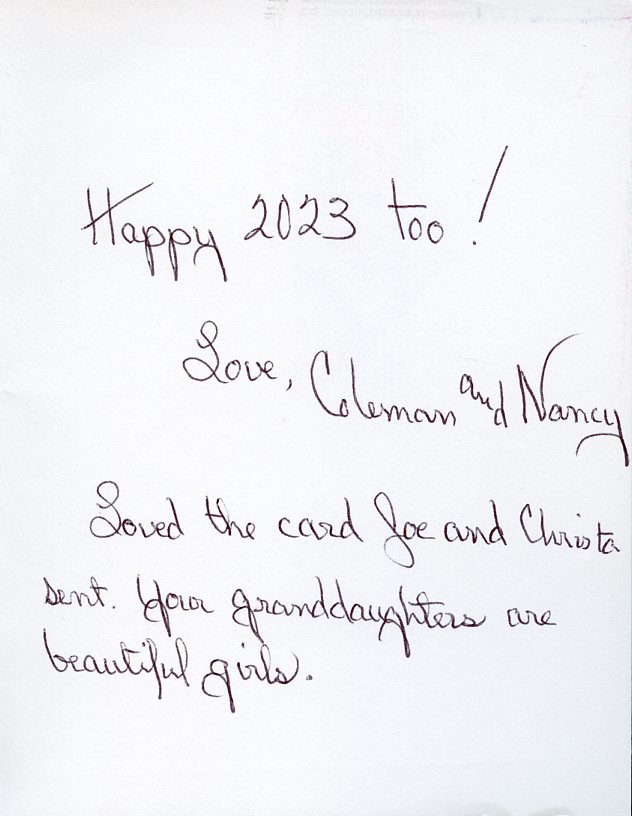 Happy 2023 too!
Love, Coleman and Nancy
Loved the card Joe and Christa
sent. Your granddaughters are
beautiful girls.